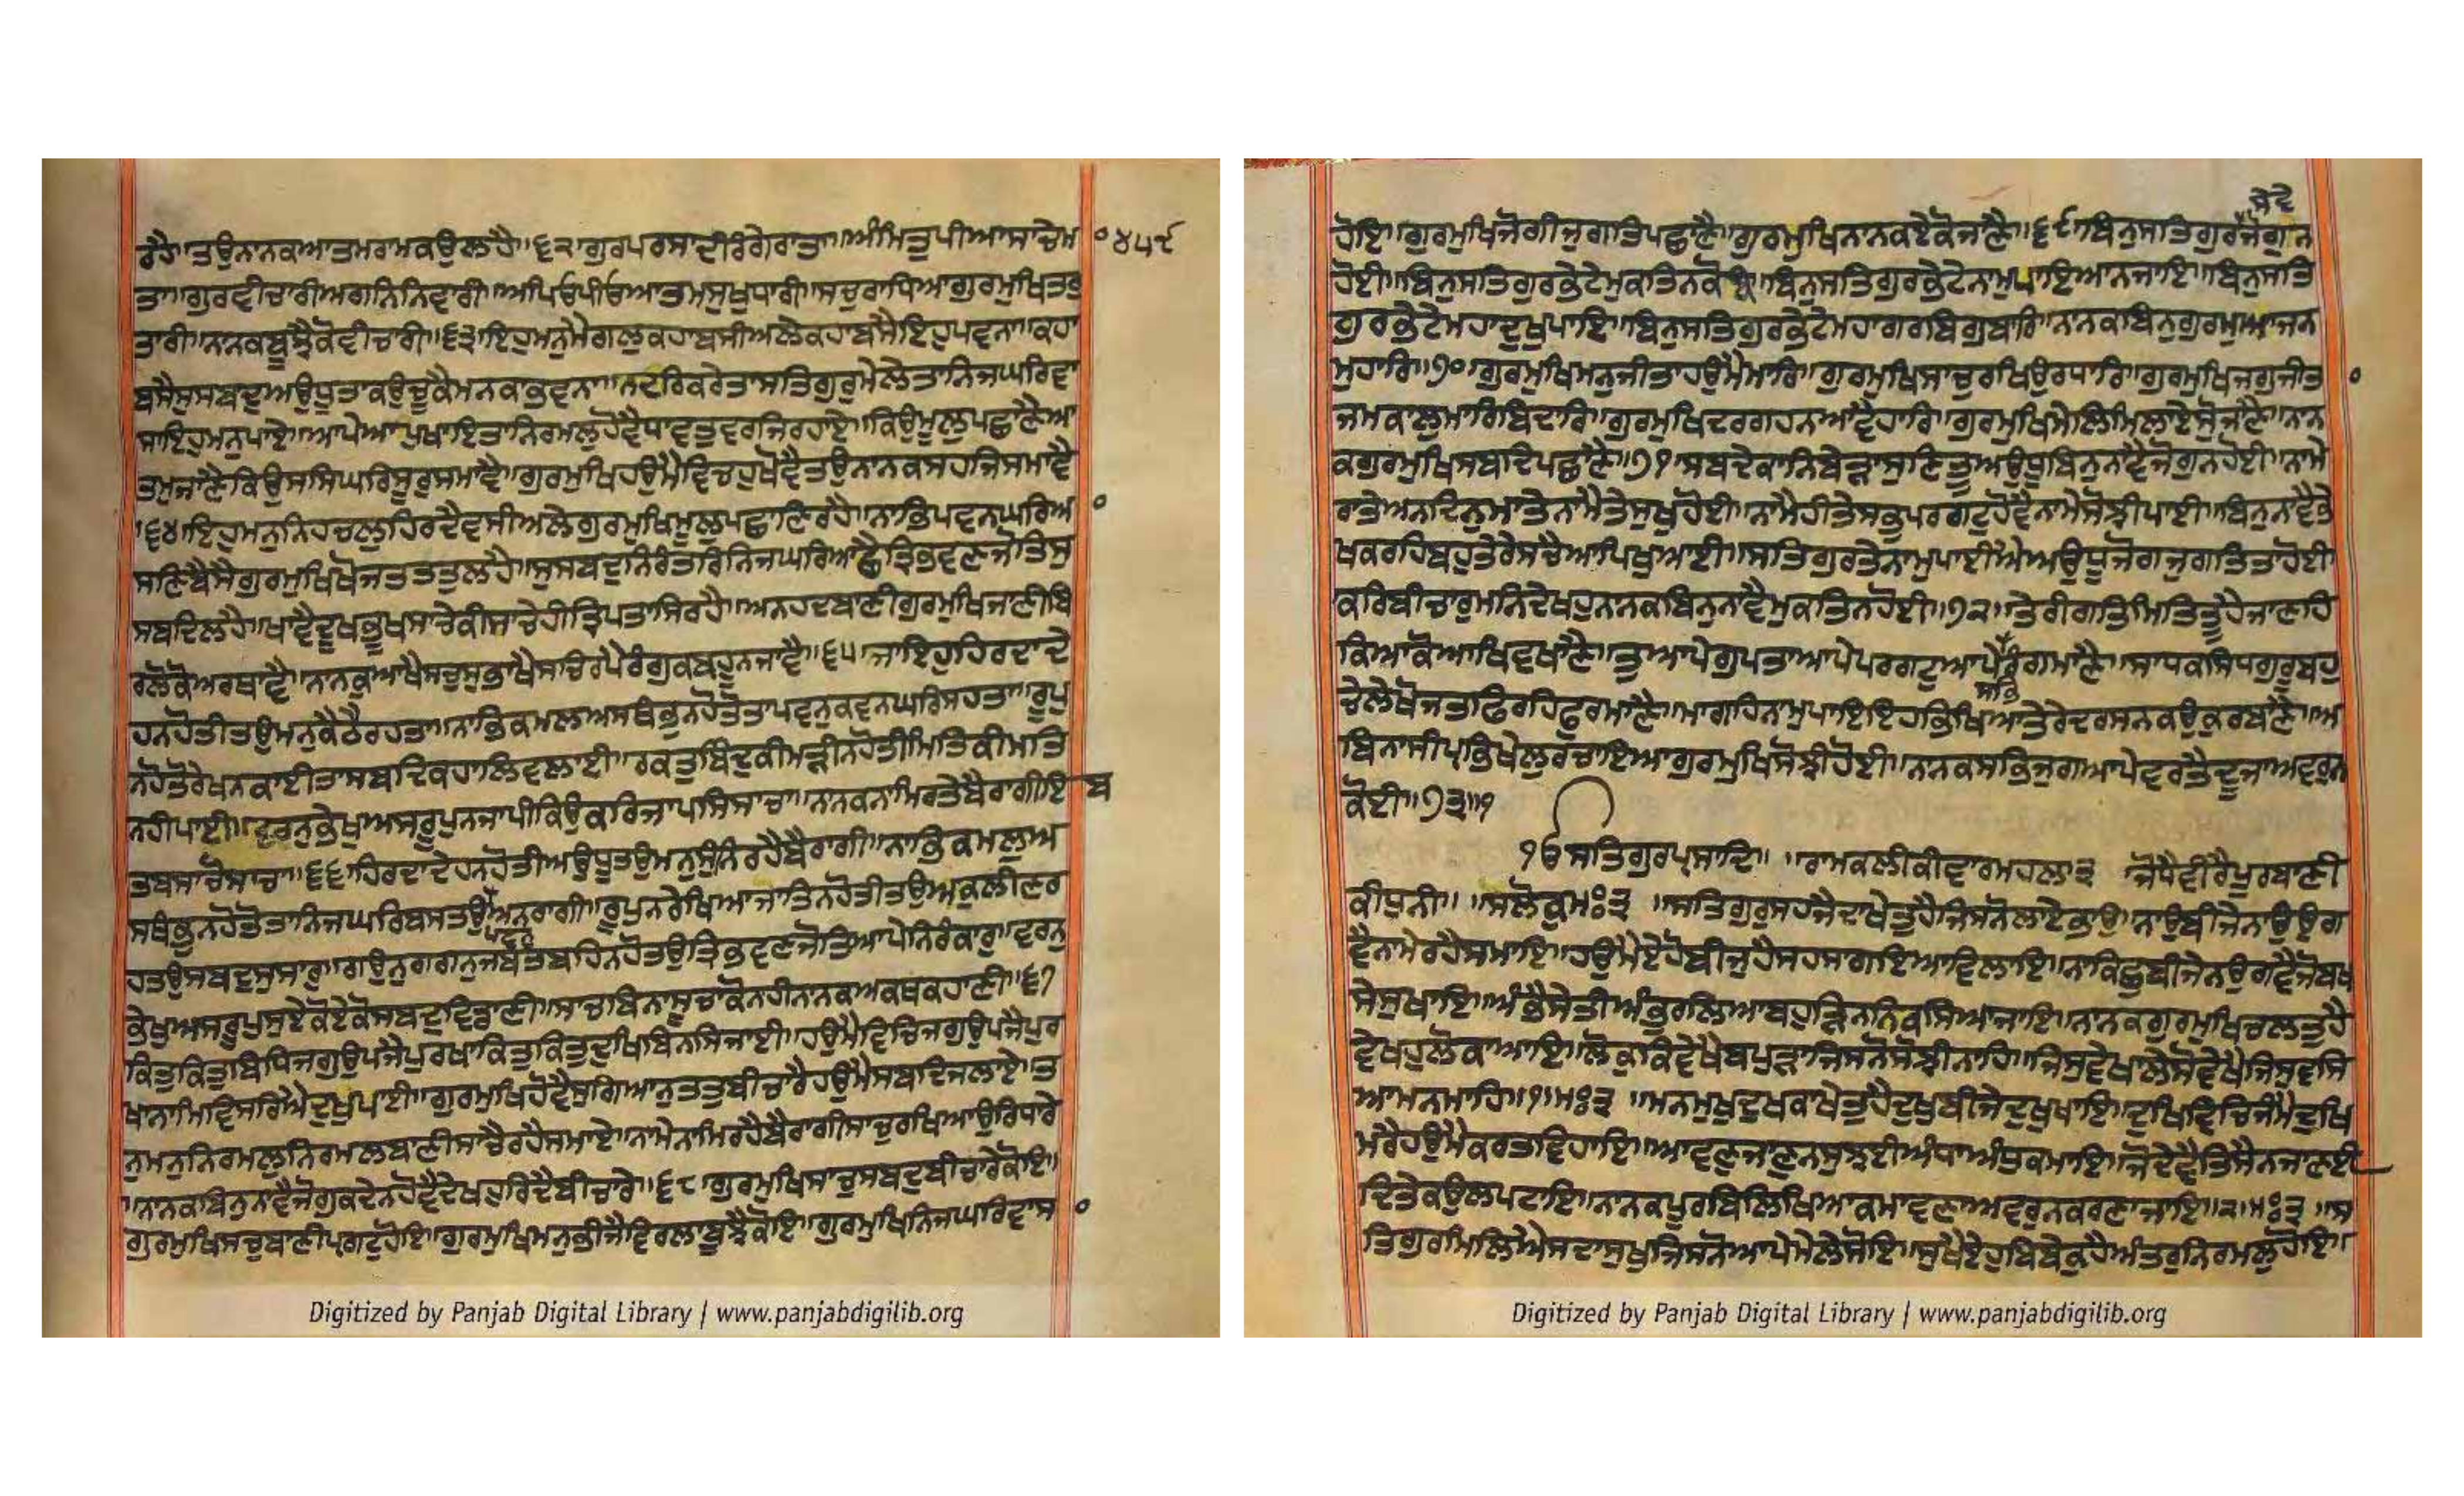 ਰਹੈ॥ਤਉਨਾਨਕਆਤਮਰਾਮਕਉਲਹੈ॥੬੨॥ਗੁਰਪਰਸਾਦੀਰੰਗੇਰਾਤਾ॥ਅੰਮ੍ਰਿਤੁਪੀਆਸਾਚੇਮਾ ੪੫੯
ਤਾ॥ਗੁਰਵੀਚਾਰੀਅਗਨਿਨਿਵਾਰੀ॥ਅਪਿਓਪੀਓਆਤਮਸੁਖੁਧਾਰੀ॥ਸਚੁਰਾਧਿਆਗੁਰਮੁਖਿਤਰੁ
ਤਾਰੀ॥ਨਾਨਕਬੂਝੈਕੋਵੀਚਾਰੀ॥੬੩॥ਇਹੁਮਨੁਮੈਗਲੁਕਹਾਬਸੀਅਲੇਕਹਾਬਸੈਇਹੁਪਵਨਾ॥ਕਹਾ
ਬਸੈਸੁਸਬਦੁਅਉਧੂਤਾਕਉਚੂਕੈਮਨਕਾਭਵਨਾ॥ਨਦਰਿਕਰੇਤਾਸਤਿਗੁਰੁਮੇਲੇਤਾਨਿਜਘਰਿਵਾ
ਸਾਇਹੁਮਨੁਪਾਏ॥ਆਪੇਆਪੁਖਾਇਤਾਨਿਰਮਲੁਹੋਵੈਧਾਵਤੁਵਰਜਿਰਹਾਏ॥ਕਿਉਮੂਲੁਪਛਾਣੈਆ
ਤਮੁਜਾਣੈਕਿਉਸਸਿਘਰਿਸੂਰੁਸਮਾਵੈ॥ਗੁਰਮੁਖਿਹਉਮੈਵਿਚਹੁਖੋਵੈਤਉਨਾਨਕਸਹਜਿਸਮਾਵੈ
॥੬੪॥ਇਹੁਮਨੁਨਿਹਚਲੁਹਿਰਦੈਵਸੀਅਲੇਗੁਰਮੁਖਿਮੂਲੁਪਛਾਣਿਰਹੈ॥ਨਾਭਿਪਵਨਘਰਿਆ
ਸਣਿਬੈਸੈਗੁਰਮੁਖਿਖੋਜਤਤਤੁਲਹੈ॥ਸੁਸਬਦੁਨਿਰੰਤਰਿਨਿਜਘਰਿਆਛੈਤ੍ਰਿਭਵਣਜੋਤਿਸੁ
ਸਬਦਿਲਹੈ॥ਖਾਵੈਦੂਖਭੂਖਸਾਚੇਕੀਸਾਚੇਹੀਤ੍ਰਿਪਤਾਸਿਰਹੈ॥ਅਨਹਦਬਾਣੀਗੁਰਮੁਖਿਜਾਣੀਬਿ
ਰਲੋਕੋਅਰਥਾਵੈ॥ਨਾਨਕੁਆਖੈਸਚੁਸੁਭਾਖੈਸਚਿਰਪੈਰੰਗੁਕਬਹੂਨਜਾਵੈ॥੬੫॥ਜਾਇਹੁਹਿਰਦਾਦੇ
ਹਨਹੋਤੀਤਉਮਨੁਕੈਠੈਰਹਤਾ॥ਨਾਭਿਕਮਲਅਸਥੰਭੁਨਹੋਤੋਤਾਪਵਨੁਕਵਨਘਰਿਸਹਤਾ॥ਰੂਪੁ
ਨਹੋਤੋਰੇਖਨਕਾਈਤਾਸਬਦਿਕਹਾਲਿਵਲਾਈ॥ਰਕਤੁਬਿੰਦੁਕੀਮੜੀਨਹੋਤੀਮਿਤਿਕੀਮਤਿ
ਨਹੀਪਾਈ॥ਵਰਨੁਭੇਖੁਅਸਰੂਪੁਨਜਾਪੀਕਿਉਕਰਿਜਾਪਸਿਸਾਚਾ॥ਨਾਨਕਨਾਮਿਰਤੇਬੈਰਾਗੀਇ ਬ
ਤਬਸਾਚੋਸਾਚਾ॥੬੬॥ਹਿਰਦਾਦੇਹਨਹੋਤੀਅਉਧੂਤਉਮਨੁਸੁੰਨਿਰਹੈਬੈਰਾਗੀ॥ਨਾਭਿਕਮਲੁਅ
ਸਥੰਭੁਨਹੋਤੋਤਾਨਿਜਘਰਿਬਸਤਉਅਨਰਾਗੀ॥ਰੂਪੁਨਰੇਖਿਆਜਾਤਿਨਹੋਤੀਤਉਅਕੁਲੀਣਰ
ਪਵਨੁ
ਹਤਉਸਬਦੁਸੁਸਾਰੁ॥ਗਉਨੁਗਗਨੁਜਬਤਬਹਿਨਹੋਤਉਤ੍ਰਿਭਵਣਜੋਤਿਆਪੇਨਿਰੰਕਾਰੁ॥ਵਰਨੁ
ਭੇਖੁਅਸਰੂਪੁਸੁਏਕੋਏਕੋਸਬਦੁਵਿਡਾਣੀ॥ਸਾਚਬਿਨਾਸੂਚਾਕੋਨਹੀਨਾਨਕਅਕਥਕਹਾਣੀ॥੬੭
ਕਿਤੁਕਿਤੁਬਿਧਿਜਗੁਉਪਜੈਪੁਰਖਾਕਿਤੁਕਿਤੁਦੁਖਿਬਿਨਸਿਜਾਈ॥ਹਉਮੈਵਿਚਿਜਗੁਉਪਜੈਪੁਰ
ਖਾਨਾਮਿਵਿਸਰਿਐਦੁਖੁਪਾਈ॥ਗੁਰਮੁਖਿਹੋਵੈਸੁਗਿਆਨੁਤਤੁਬੀਚਾਰੈਹਉਮੈਸਬਦਿਜਲਾਏ॥ਤ
ਨੁਮਨੁਨਿਰਮਲੁਨਿਰਮਲਬਾਣੀਸਾਚੈਰਹੈਸਮਾਏ॥ਨਾਮੇਨਾਮਿਰਹੈਬੈਰਾਗੀਸਾਚੁਰਖਿਆਉਰਿਧਾਰੇ
॥ਨਾਨਕਬਿਨੁਨਾਵੈਜੋਗੁਕਦੇਨਹੋਵੈਦੇਖਹੁਰਿਦੈਬੀਚਾਰੇ॥੬੮॥ਗੁਰਮੁਖਿਸਾਚੁਸਬਦੁਬੀਚਾਰੇਕੋਇ॥
ਗੁਰਮੁਖਿਸਚੁਬਾਣੀਪ੍ਰਗਟੁਹੋਇ॥ਗੁਰਮੁਖਿਮਨੁਭੀਜੈਵਿਰਲਾਬੂਝੈਕੋਇ॥ਗੁਰਮੁਖਿਨਿਜਘਰਿਵਾਸਾ
ਸੇਵੇ
ਹੋਇ॥ਗੁਰਮੁਖਿਜੋਗੀਜੁਗਤਿਪਛਾਣੈ॥ਗੁਰਮੁਖਿਨਾਨਕਏਕੋਜਾਣੈ॥੬੯॥ਬਿਨੁਸਤਿਗੁਰਜੋਗੁਨ
ਹੋਈ॥ਬਿਨੁਸਤਿਗੁਰਭੇਟੇਮੁਕਤਿਨਕੋਈ॥ਬਿਨੁਸਤਿਗੁਰਭੇਟੇਨਾਮੁਪਾਇਆਨਜਾਇ॥ਬਿਨੁਸਤਿ
ਗੁਰਭੇਟੇਮਹਾਦੁਖੁਪਾਇ॥ਬਿਨੁਸਤਿਗੁਰਭੇਟੇਮਹਾਗਰਬਿਗੁਬਾਰਿ॥ਨਾਨਕਬਿਨੁਗੁਰਮੁਆਜਨ
ਮੁਹਾਰਿ॥੭੦॥ਗੁਰਮੁਖਿਮਨੁਜੀਤਾਹਉਮੈਮਾਰਿ॥ਗੁਰਮੁਖਿਸਾਚੁਰਖਿਉਰਧਾਰਿ॥ਗੁਰਮੁਖਿਜਗੁਜੀਤਾ
ਜਮਕਾਲੁਮਾਰਿਬਿਦਾਰਿ॥ਗੁਰਮੁਖਿਦਰਗਹਨਆਵੈਹਾਰਿ॥ਗੁਰਮੁਖਿਮੇਲਿਮਿਲਾਏਸੋੁਜਾਣੈ॥ਨਾਨ
ਕਗੁਰਮੁਖਿਸਬਦਿਪਛਾਣੈ॥੭੧॥ਸਬਦੈਕਾਨਿਬੇੜਾਸੁਣਿਤੂਅਉਧੂਬਿਨੁਨਾਵੈਜੋਗੁਨਹੋਈ॥ਨਾਮੇ
ਰਾਤੇਅਨਦਿਨੁਮਾਤੇਨਾਮੈਤੇਸੁਖੁਹੋਈ॥ਨਾਮੈਹੀਤੇਸਭੁਪਰਗਟੁਹੋਵੈਨਾਮੇਸੋਝੀਪਾਈ॥ਬਿਨੁਨਾਵੈਭੇ
ਖਕਰਹਿਬਹੁਤੇਰੇਸਚੈਆਪਿਖੁਆਈ॥ਸਤਿਗੁਰਤੇਨਾਮੁਪਾਈਐਅਉਧੂਜੋਗਜੁਗਤਿਤਾਹੋਈ
ਕਰਿਬੀਚਾਰੁਮਨਿਦੇਖਹੁਨਾਨਕਬਿਨੁਨਾਵੈਮੁਕਤਿਨਹੋਈ॥੭੨॥ਤੇਰੀਗਤਿਮਿਤਿਤੂਹੈਜਾਣਹਿ
ਕਿਆਕੋਆਖਿਵਖਾਣੈ॥ਤੂਆਪੇਗੁਪਤਾਆਪੇਪਰਗਟੁਆਪੇਰੰਗਮਾਣੈ॥ਸਾਧਕਸਿਧਗੁਰੂਬਹੁ
ਸਭਿ
ਚੇਲੇਖੋਜਤਫਿਰਹਿਫੁਰਮਾਣੈ॥ਮਾਗਹਿਨਾਮੁਪਾਇਇਹਭਿਖਿਆਤੇਰੇਦਰਸਨਕਉਕੁਰਬਾਣੈ॥ਅ
ਬਿਨਾਸੀਪ੍ਰਭਿਖੇਲੁਰਚਾਇਆਗੁਰਮੁਖਿਸੋਝੀਹੋਈ॥ਨਾਨਕਸਭਿਜੁਗਆਪੇਵਰਤੈਦੂਜਾਅਵਰੁਨ
ਕੋਈ॥੭੩॥੧
ੴਸਤਿਗੁਰਪ੍ਰਸਾਦਿ॥ ॥ਰਾਮਕਲੀਕੀਵਾਰਮਹਲਾ੩ ਜੋਧੈਵੀਰੈਪੂਰਬਾਣੀ
ਕੀਧੁਨੀ॥ ॥ਸਲੋਕੁਮਃ੩ ॥ਸਤਿਗੁਰੁਸਹਜੈਦਾਖੇਤੁਹੈਜਿਸਨੋਲਾਏਭਾਉ॥ਨਾਉਬੀਜੇਨਾਉਉਗ
ਵੈਨਾਮੇਰਹੈਸਮਾਇ॥ਹਉਮੈਏਹੋਬੀਜੁਹੈਸਹਸਾਗਇਆਵਿਲਾਇ॥ਨਾਕਿਛੁਬੀਜੇਨਉਗਵੈਜੋਬਖ
ਸੇਸੁਖਾਇ॥ਅੰਭੈਸੇਤੀਅੰਭੁਰਲਿਆਬਹੁੜਿਨਨਿਕਸਿਆਜਾਇ॥ਨਾਨਕਗੁਰਮੁਖਿਚਲਤੁਹੈ
ਵੇਖਹੁਲੋਕਾਆਇ॥ਲੋਕੁਕਿਵੇਖੈਬਪੁੜਾਜਿਸਨੋਸੋਝੀਨਾਹਿ॥ਜਿਸੁਵੇਖਾਲੇਸੋਵੇਖੈਜਿਸੁਵਸਿ
ਆਮਨਮਾਹਿ॥੧॥ਮਃ੩ ॥ਮਨਮੁਖੁਦੁਖਕਾਖੇਤੁਹੈਦੁਖੁਬੀਜੇਦੁਖੁਖਾਇ॥ਦੁਖਿਵਿਚਿਜੰਮੈਦੁਖਿ
ਮਰੈਹਉਮੈਕਰਤਵਿਹਾਇ॥ਆਵਣੁਜਾਣੁਨਸੁਝਈਅੰਧਾਅੰਧੁਕਮਾਇ॥ਜੋਦੇਵੈਤਿਸੈਨਜਾਣਈ
ਦਿਤੇਕਉਲਪਟਾਇ॥ਨਾਨਕਪੂਰਬਿਲਿਖਿਆਕਮਾਵਣਾਅਵਰੁਨਕਰਣਾਜਾਇ॥੨॥ਮਃ੩ ॥ਸ
ਤਿਗੁਰਮਿਲਿਐਸਦਾਸੁਖੁਜਿਸਨੋਆਪੇਮੇਲੇਸੋਇ॥ਸੁਖੈਏਹੁਬਿਬੇਕੁਹੈਅੰਤਰੁਨਿਰਮਲੁਹੋਇ॥
Digitized by Panjab Digital Library | www.panjabdigilib.org
Digitized by Panjab Digital Library | www.panjabdigilib.org